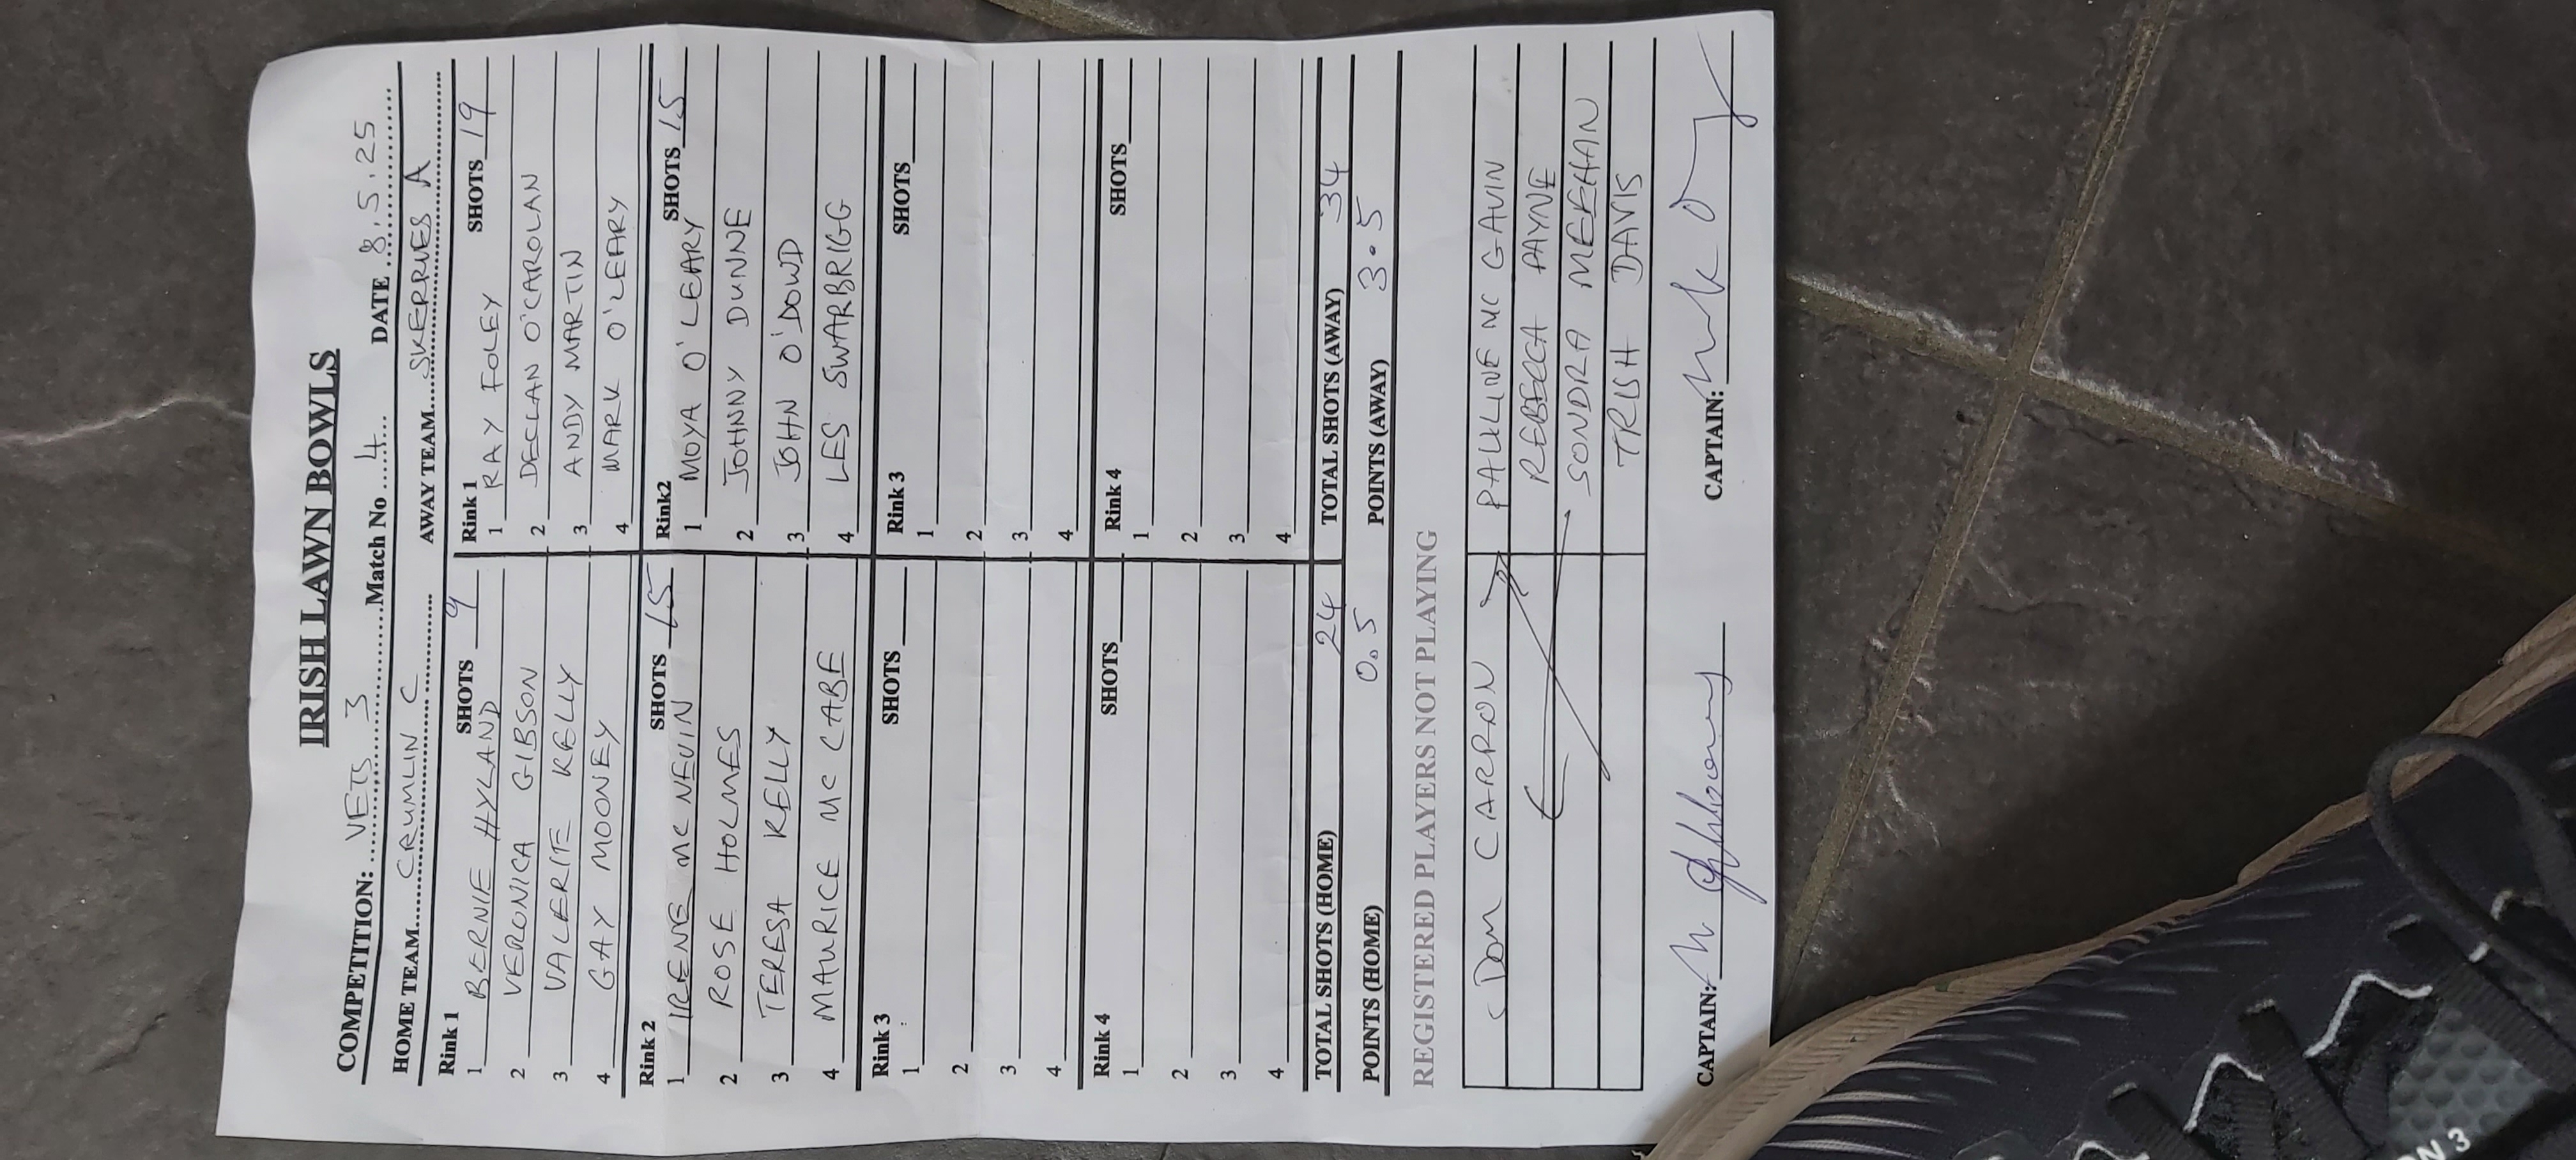 IRISH LAWN BOWLS
COMPETITION: VETS 3 Match No 4 DATE 8.5.25
HOME TEAM CRUMLIN C AWAY TEAM SKERRIES A
Rink 1 SHOTS 9 Rink 1 SHOTS 19
1 BERNIE HYLAND 1 RAY FOLEY
2 VERONICA GIBSON 2 DECLAN O'CAROLAN
3 VALERIE KELLY 3 ANDY MARTIN
4 GAY MOONEY 4 MARK O'LEARY
Rink 2 SHOTS 15 Rink2 SHOTS 15
1 IRENE MC NEVIN 1 MOYA O'LEARY
2 ROSE HOLMES 2 JOHNNY DUNNE
3 TERESA KELLY 3 JOHN O'DOWD
4 MAURICE MC CABE 4 LES SWARBRIGG
Rink 3 SHOTS Rink 3 SHOTS
1 1
2 2
3 3
4 4
Rink 4 SHOTS Rink 4 SHOTS
1 1
2 2
3 3
4 4
TOTAL SHOTS (HOME) 24 TOTAL SHOTS (AWAY) 34
POINTS (HOME) 0.5 POINTS (AWAY) 3.5
REGISTERED PLAYERS NOT PLAYING
DOM CARRON PAULINE MC GAVIN
REBECCA PAYNE
SONDRA MEEHAN
TRISH DAVIS
CAPTAIN: CAPTAIN:
N 3